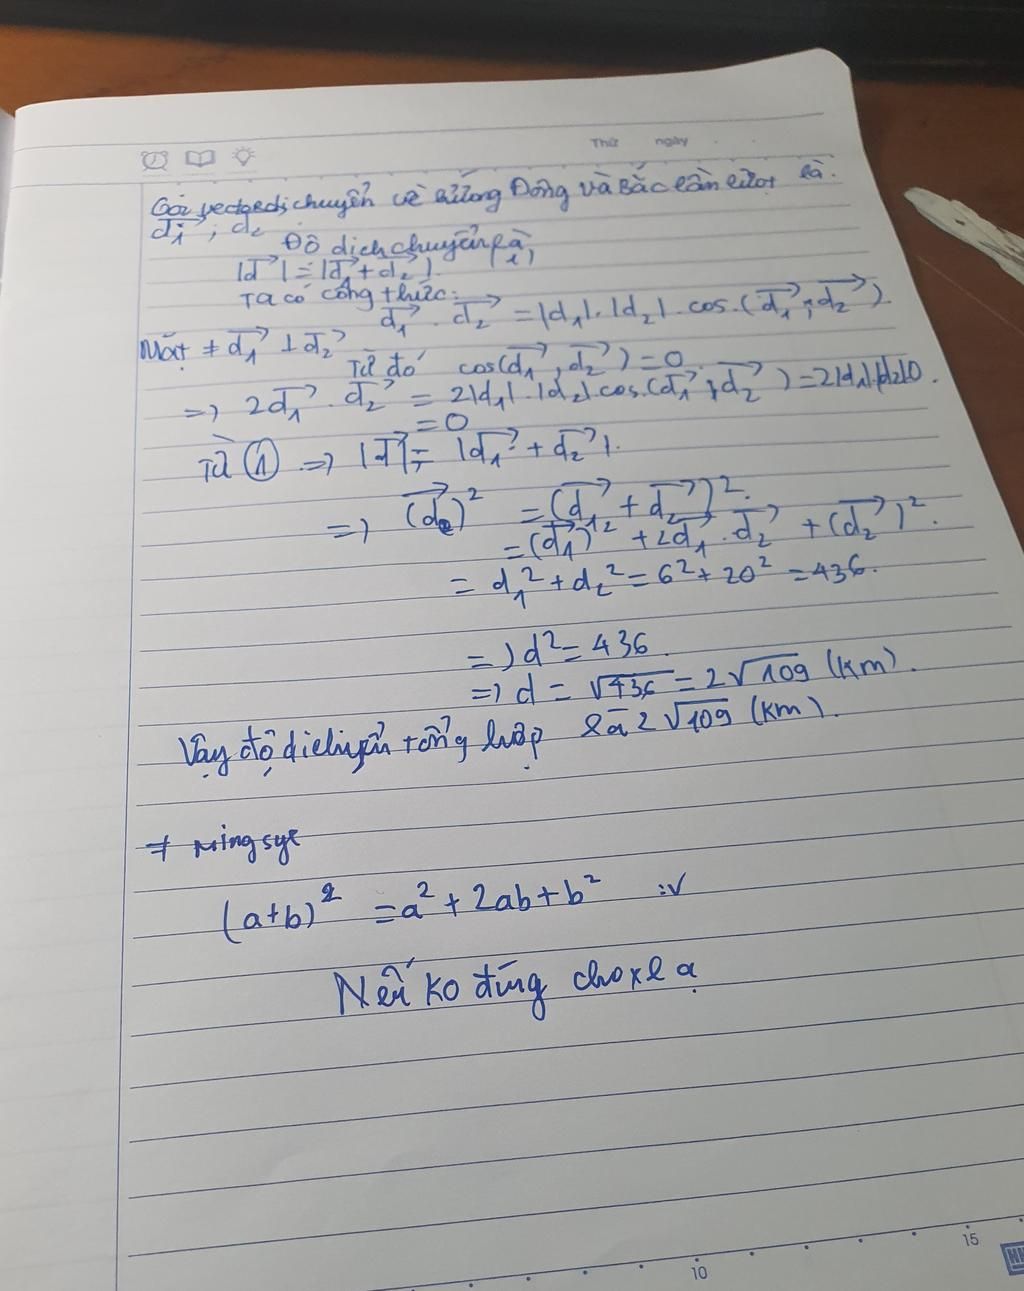 Thứ ngày
Gọi vectơ dịch chuyển về hướng Đông và Bắc lần lượt là.
d₁⃗ ; d₂⃗
Độ dịch chuyển là
|d⃗| = |d₁⃗ + d₂⃗| (1)
Ta có công thức:
d₁⃗ . d₂⃗ = |d₁|.|d₂|.cos.(d₁⃗ ; d₂⃗).
Mặt ≠ d₁⃗ ⊥ d₂⃗
Từ đó cos(d₁⃗ , d₂⃗) = 0
=> 2d₁⃗ . d₂⃗ = 2|d₁|.|d₂|.cos.(d₁⃗ ; d₂⃗) = 2|d₁|.|d₂|.0.
= 0
Từ ① => |d⃗| = |d₁⃗ + d₂⃗|.
=> (d⃗)² = (d₁⃗ + d₂⃗)².
= (d₁⃗)² + 2d₁⃗ . d₂⃗ + (d₂⃗)².
= d₁² + d₂² = 6² + 20² = 436.
=> d² = 436.
=> d = √436 = 2√109 (km).
Vậy độ tổng hợp là 2√109 (km).
(a+b)² = a² + 2ab + b² :v
Nếu ko đúng cho xl ạ
10
15